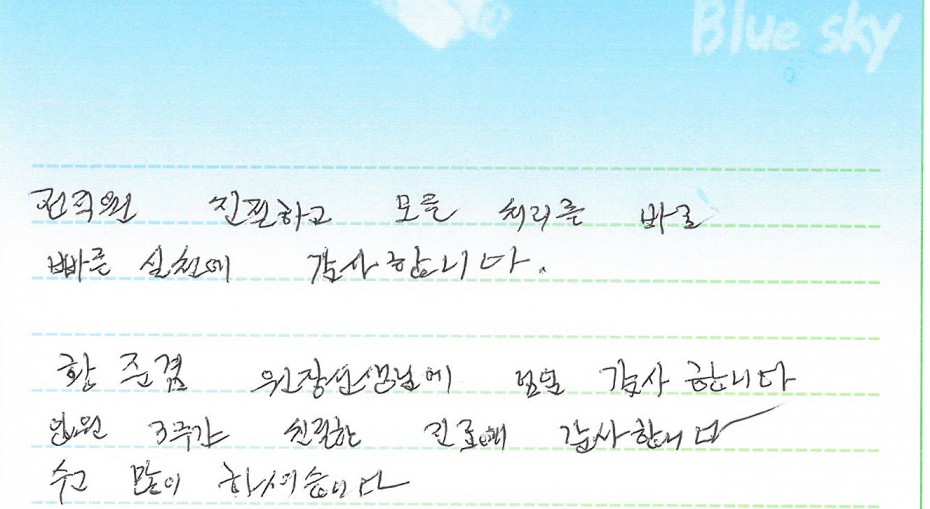 Blue sky
전직원 친절하고 모든 처리를 바로
빠른 실천에 감사합니다.
황 준경 원장선생님에 감사 합니다
입원 3주간 친절한 진료에 감사합니다
수고 많이 하셨습니다